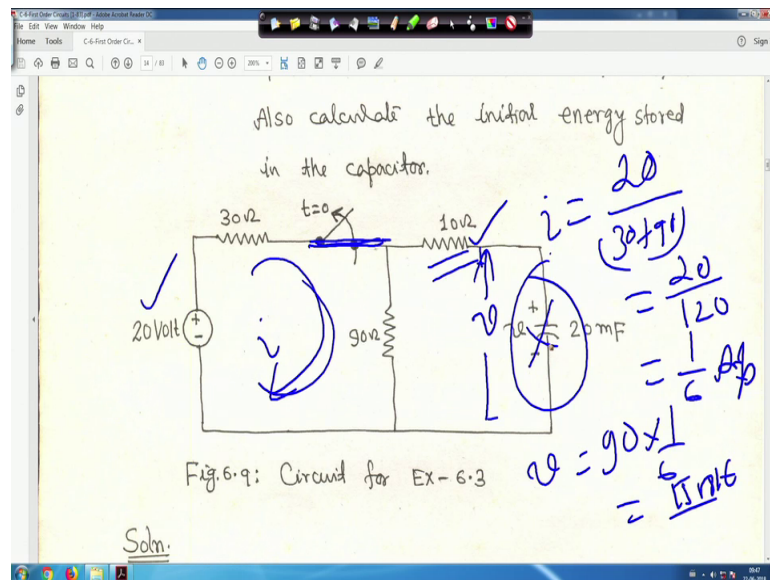 C-6-First Order Circuits [1-83].pdf - Adobe Acrobat Reader DC
File Edit View Window Help
Home Tools C-6-First Order Cir... × Sign
14 / 83 200%
Also calculate the initial energy stored
in the capacitor.
30Ω t=0 10Ω
20 Volt + - i 90Ω v v + - 20 mF
i = 20 / (30+90)
= 20 / 120
= 1 / 6 Amp
v = 90 × 1 / 6
= 15 volt
Fig. 6.9: Circuit for Ex-6.3
Soln.
09:47